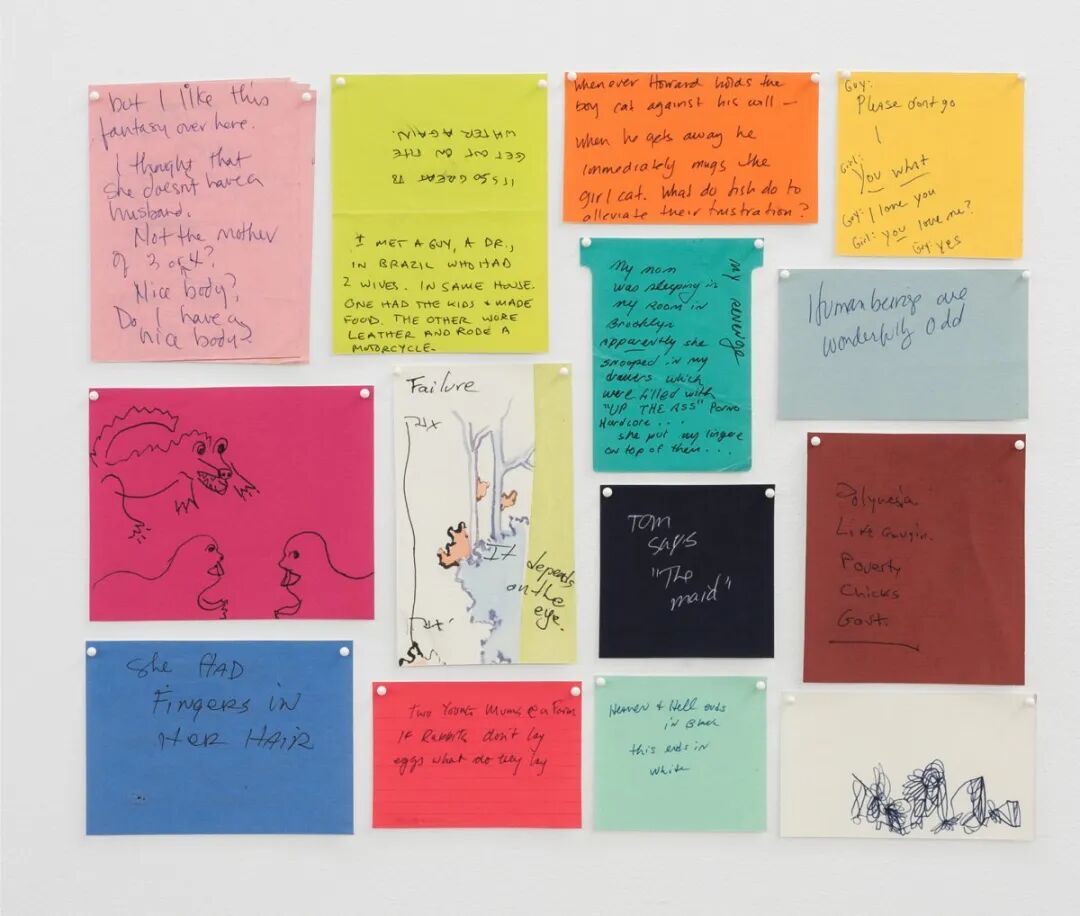 but I like this
fantasy over here.
I thought that
she doesnt have a
husband.
Not the mother
of 3 or 4?
Nice body?
Do I have a
nice body?
IT'S SO GREAT TO
GET OUT ON THE
WATER AGAIN.
I MET A GUY, A DR.,
IN BRAZIL WHO HAD
2 WIVES. IN SAME HOUSE.
ONE HAD THE KIDS & MADE
FOOD. THE OTHER WORE
LEATHER AND RODE A
MOTORCYCLE.
Whenever Howard holds the
boy cat against his will —
when he gets away he
immediately mugs the
girl cat. What do fish do to
alleviate their frustration?
Guy:
Please dont go
I
Girl: You what
Guy: I love you
Girl: you love me?
Guy: yes
My mom
was sleeping in
my room in
Brooklyn
apparently she
snooped in my
drawers which
were filled with
"UP THE ASS" Porno
Hardcore...
she put my lingere
on top of them...
MY REVENGE
Human beings are
wonderfully odd
Failure
It depends
on the
eye.
Tom
says
"The
maid"
Polynesia
Like Gaugin.
Poverty
Chicks
Govt.
She HAD
Fingers in
Her HAIR
Two Young Mums @ a Farm
If Rabbits don't lay
eggs what do they lay
Heaven & Hell ends
in Black
this ends in
White